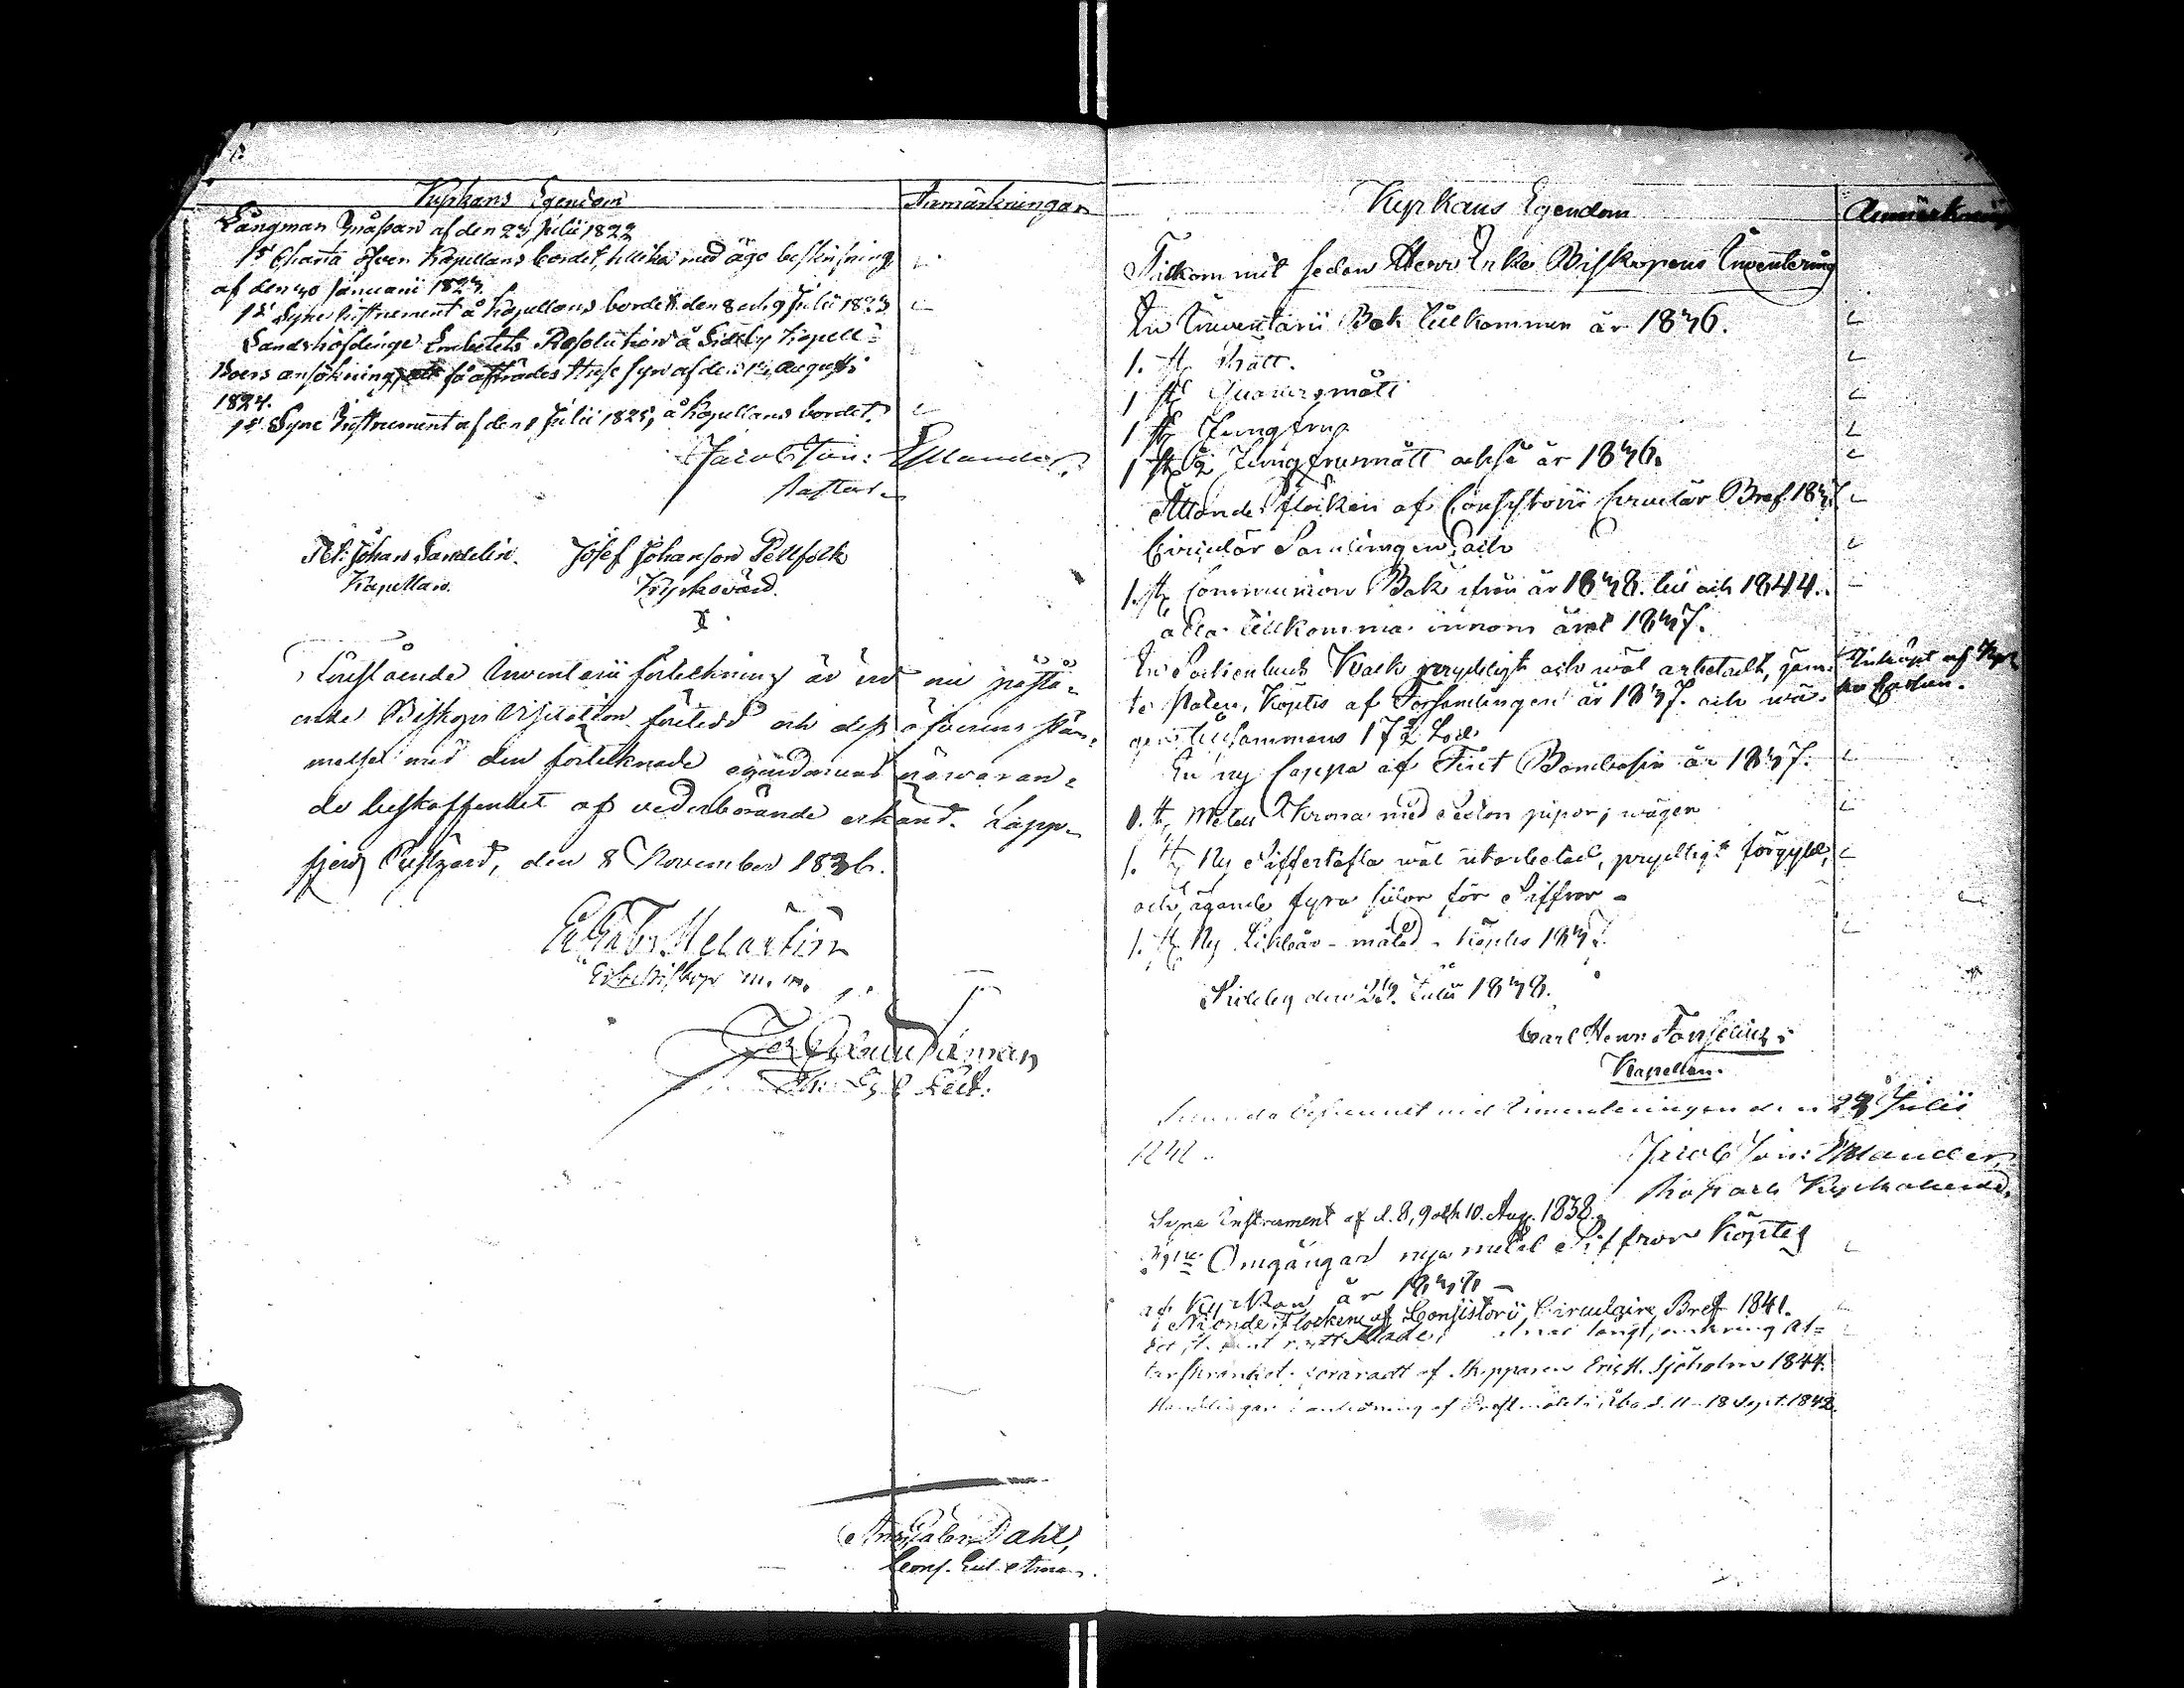 Kyrkans Egendom
Anmärkningar
Långman Gråpan af den 23 Julii 1822
1 st Charta öfver Kapellans bordet, tillika med ägo beskrifning
af den 30 Januarii 1823.
1 st Syne Instrument å Kapellans bordet den 8 och 9 Julii 1823
Landshöfdinge Embetets Resolution å Sideby Kapell-
Boers ansökning, att få afträdes Huse syn af den 12 Augusti
1824.
1 st Syne Instrument af den 1 Julii 1825, å Kapellans bordet.
Jacob Jon: Estlander.
Pastor.
Pet: Johan Sandelin. Josef Johanson Pellfolk
Kapellan. Kyrkovärd.
Förestående Inventarii förtekning är vid nu påstå-
ende Biskops Visitation företedd och dess öfverens stäm-
melse med den förteknade egendomens närvaran-
de beskaffenhet af vederbörande erkänd. Lapp-
fjerd Prestgård, den 8 November 1836.
E. G. Melartin
Erkebiskop m. m.
And. Gabr. Dahl,
Conf. Eccl. Aman.
Kyrkans Egendom
Anmärkning
Tillkommit sedan Herr Erke Biskopens Inventering
En Inventarii Bok tillkommen år 1836.
1. st
1 st Quartersmått
1 st Jungfru
1 st ½ Jungfrumått också år 1836.
Åttonde flocken af Consistorii Circulär Bref 1837
Circulär Samlingen och
1. st Communion Bok ifrån år 1838. till och 1844.
alla tillkomma innom året 1837.
En Sockenbuds Kalk prydligt och wäl arbetadt, jäm-
te Paten, köptes af Församlingen år 1837. och wä-
ger tillsammans 17½ Lod.
Inköpt af Kyr
ko Cassan.
En ny Cappa af Fint Bombasin år 1837.
1. st Metall Krona med Sexton pipor, wäger
1. st Ny Siffertafla wäl utarbetad, prydligt förgyld,
och ägande fyra sidor för Siffror -
1. st Ny Likbår - målad - köptes 1837.
Sideby den Julii 1838.
Carl Henr. Forselius.
Kapellan.
Sålunda befunnet vid Inventeringen den Julii
Jacob Jon: Estlander
Prost och Kyrkoherde.
Syne Instrument af d. 8, 9 och 10. Aug. 1838.
Omgångar nya metal Siffror köptes
af Kyrkan år
Nionde Flocken af Consistorii Circulaire Bref 1841.
långt, omkring Al-
tarskranket. föräradt af Skepparen Eric H. Sjöholm 1844.
Handlingar i anledning af Prestmötet i Åbo d. 11 - 18 Sept. 1842.